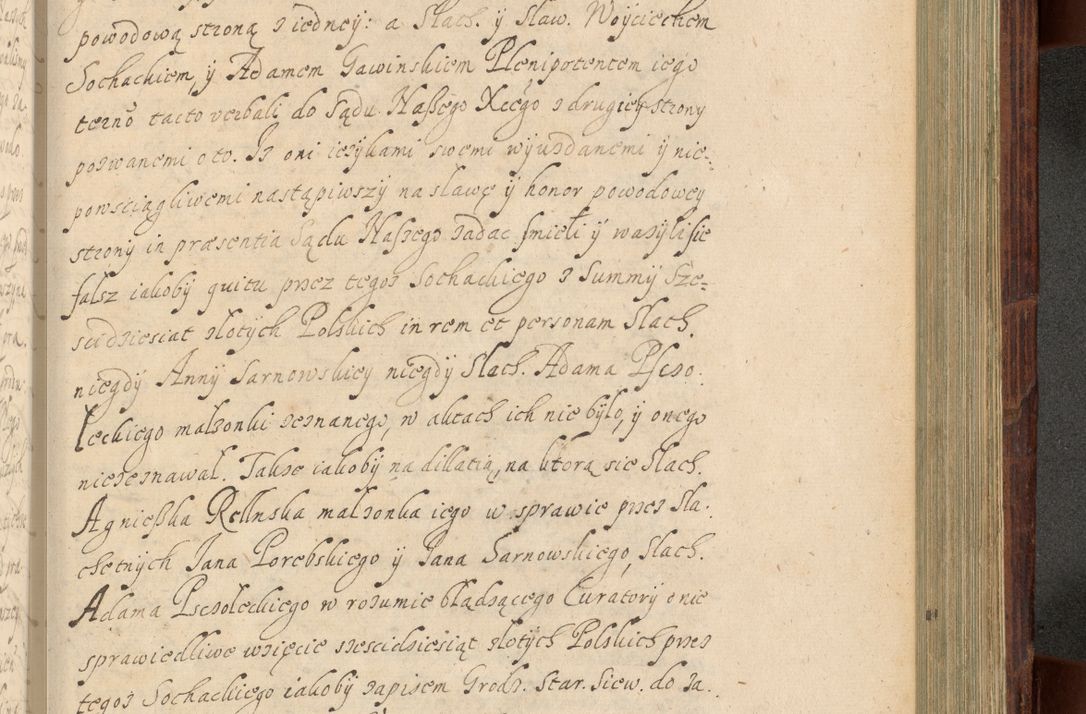 powodową stroną z iedney: a Slach. ÿ Slaw. Woÿciechem
Sochackiem, ÿ Adamem Gawinskiem Plenipotentem iego
terño tacto verbali do Sądu Naszego Xcego z drugiey strony
pozwanemi o to. Iz oni ięzykami swemi wÿuzdanemi ÿ nie=
powsciągliwemi nastąpiwszÿ na sławę ÿ honor powodowey
strony in præsentia Sądu Naszego zadac smieli ÿ wazÿli sie
falsz iakobÿ quitu przez tegoz Sochackiego z Summÿ Sze=
scdziesiat złotÿch Polskich in rem et personam Slach.
niegdÿ Annÿ Sarnowskieÿ niegdÿ Slach. Adama Psczo.
leckiego małzonki zeznanego, w aktach ich nie bÿło, ÿ onego
niezeznawał. Takze iakobÿ na dillatią, na ktorą sie Slach.
Agnieszka Rellnska małzonka iego w sprawie przez Sla.
chetnÿch Jana Porebskiego ÿ Jana Sarnowskiego, Slach.
Adama Psczoleckiego w rozumie błądzącego Curatorÿ o nie
sprawiedliwe wzięcie szescidziesiąt złotÿch Polskich przez
tegoz Sochackiego iakobÿ zapisem Grodz. Star. Siew. do Ja.